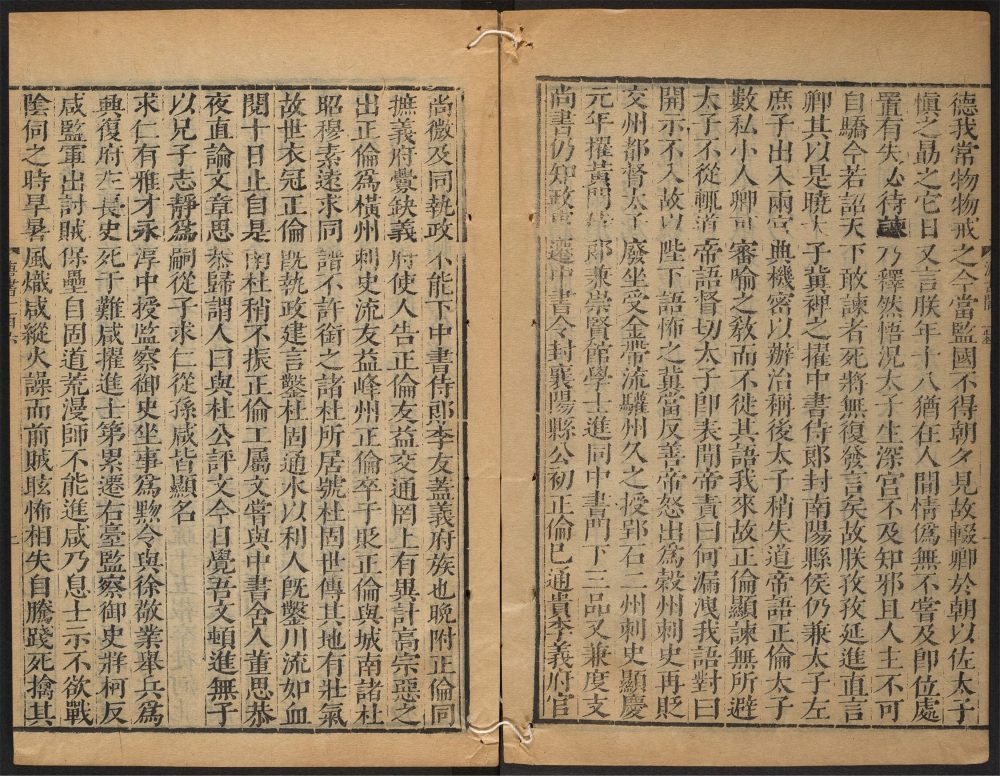 德我常物物戒之今當監國不得朝夕見故輟卿於朝以佐太子
愼之勗之它日又言朕年十八猶在人閒情僞無不嘗及卽位處
置有失必待諫乃釋然悟況太子生深宮不及知邪且人主不可
自驕今若詔天下敢諫者死將無復發言矣故朕孜孜延進直言
卿其以是曉太子冀裨之擢中書侍郎封南陽縣侯仍兼太子左
庶子出入兩宮典機密以辦治稱後太子稍失道帝語正倫太子
數私小人卿可審喻之敎而不徙其語我來故正倫顯諫無所避
太子不從輒道帝語督切太子卽表聞帝責曰何漏洩我語對曰
開示不入故以陛下語怖之冀當反善帝怒出爲穀州刺史再貶
交州都督太子廢坐受金帶流驩州久之授郢石二州刺史顯慶
元年擢黃門侍郎兼崇賢館學士進同中書門下三品又兼度支
尚書仍知政事遷中書令封襄陽縣公初正倫已通貴李義府官
尚微及同執政不能下中書侍郎李友益義府族也晩附正倫同
摭義府釁缺義府使人告正倫友益交通罔上有異計高宗惡之
出正倫爲橫州刺史流友益峰州正倫卒于貶正倫與城南諸杜
昭穆素遠求同譜不許銜之諸杜所居號杜固世傳其地有壯氣
故世衣冠正倫旣執政建言鑿杜固通水以利人旣鑿川流如血
閱十日止自是南杜稍不振正倫工屬文嘗與中書舍人董思恭
夜直論文章思恭歸謂人曰與杜公評文今日覺吾文頓進無子
以兄子志靜爲嗣從子求仁從孫咸皆顯名
求仁有雅才永淳中授監察御史坐事爲黟令與徐敬業舉兵爲
興復府左長史死于難咸擢進士第累遷右臺監察御史牂柯反
咸監軍出討賊保壘自固道荒漫師不能進咸乃息士示不欲戰
陰伺之時旱暑風熾咸縱火譟而前賊眩怖相失自騰踐死擒其